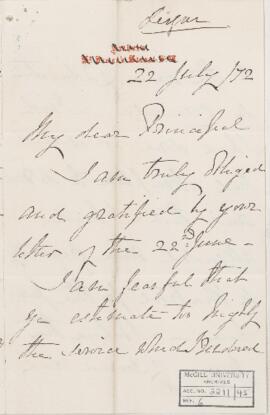 Lisgar
22 July /72
My dear Principal
I am truly obliged
and gratified by your
letter of the 22nd June -
I am fearful that
ye estimate too highly
the service which I rendered
McGILL UNIVERSITY
ARCHIVES
ACC. NO. 2211 / 45
REF. 6